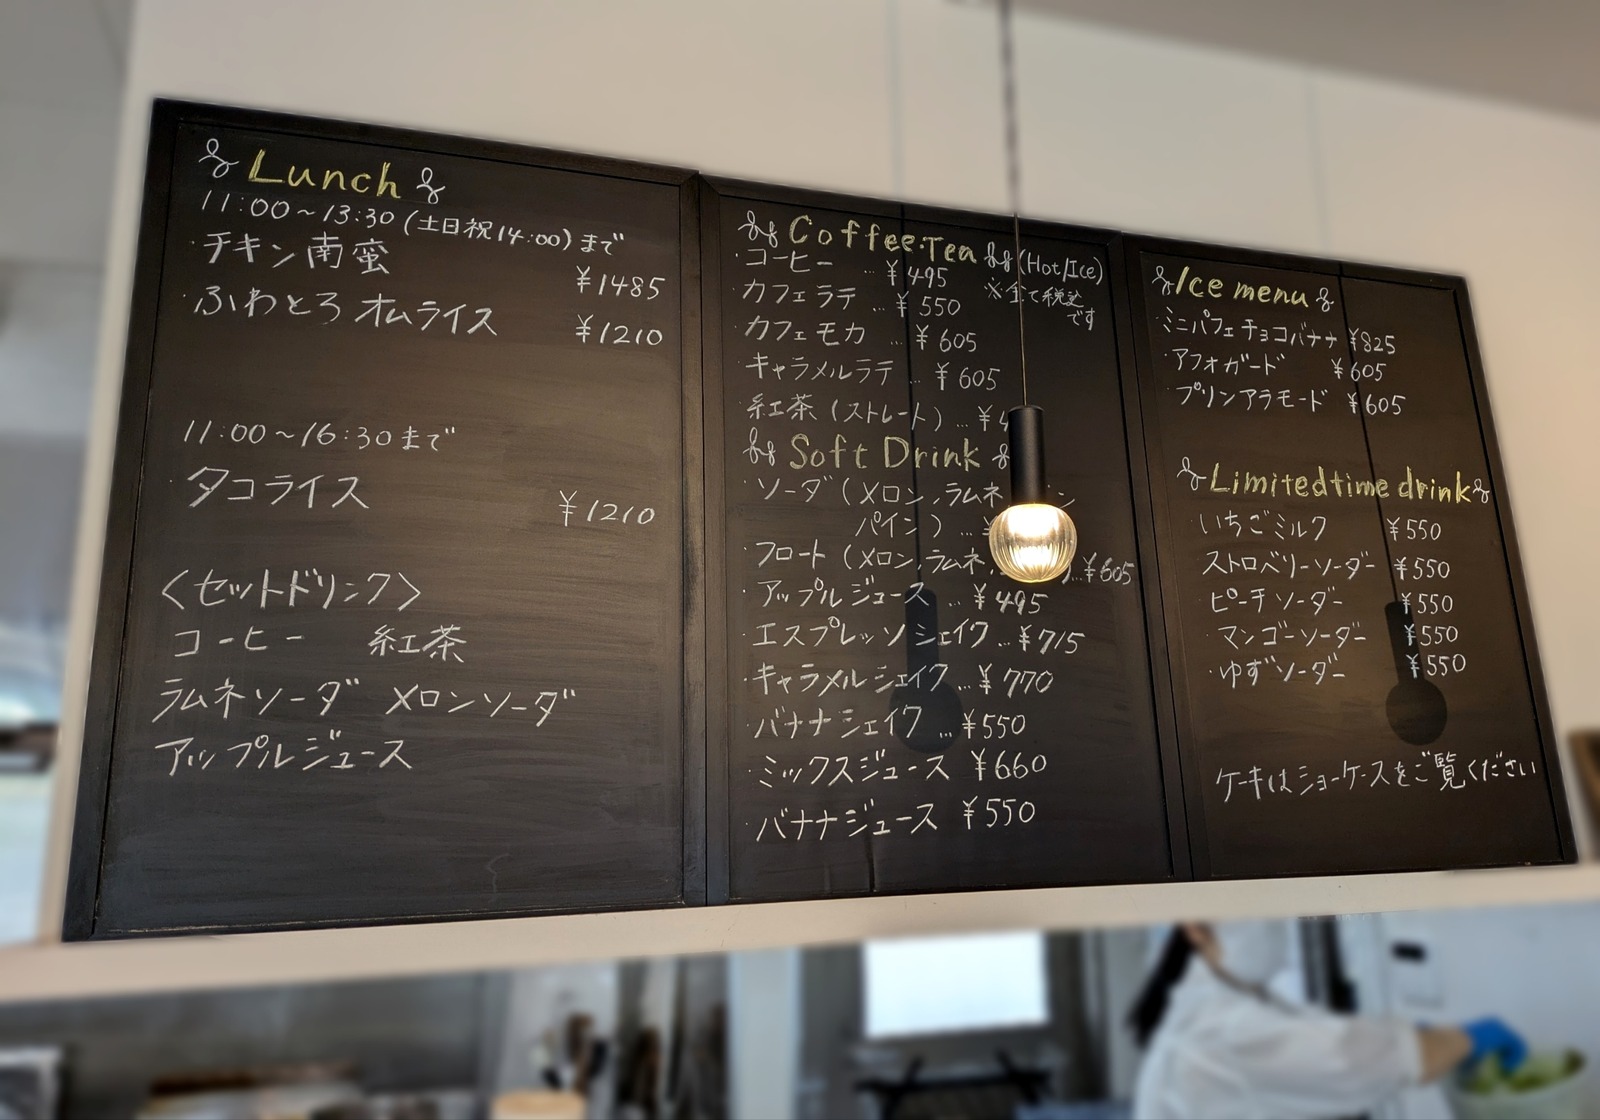 Lunch
11:00～13:30(土日祝14:00)まで
・チキン南蜜 ¥1485
・ふわとろオムライス ¥1210
11:00～16:30まで
・タコライス ¥1210
〈セットドリンク〉
コーヒー 紅茶
ラムネソーダ メロンソーダ
アップルジュース
Coffee・Tea (Hot/Ice)
・コーヒー … ¥495
※全て税込です
・カフェラテ … ¥550
・カフェモカ … ¥605
・キャラメルラテ … ¥605
・紅茶(ストレート) … ¥4
Soft Drink
・ソーダ(メロン,ラムネ
パイン) …
・フロート(メロン,ラムネ, )…¥605
・アップルジュース … ¥495
・エスプレッソシェイク …¥715
・キャラメルシェイク …¥770
・バナナシェイク …¥550
・ミックスジュース ¥660
・バナナジュース ¥550
Ice menu
・ミニパフェチョコバナナ ¥825
・アフォガード ¥605
・プリンアラモード ¥605
Limited time drink
・いちごミルク ¥550
ストロベリーソーダー ¥550
・ピーチソーダー ¥550
・マンゴーソーダー ¥550
・ゆずソーダー ¥550
ケーキはショーケースをご覧ください